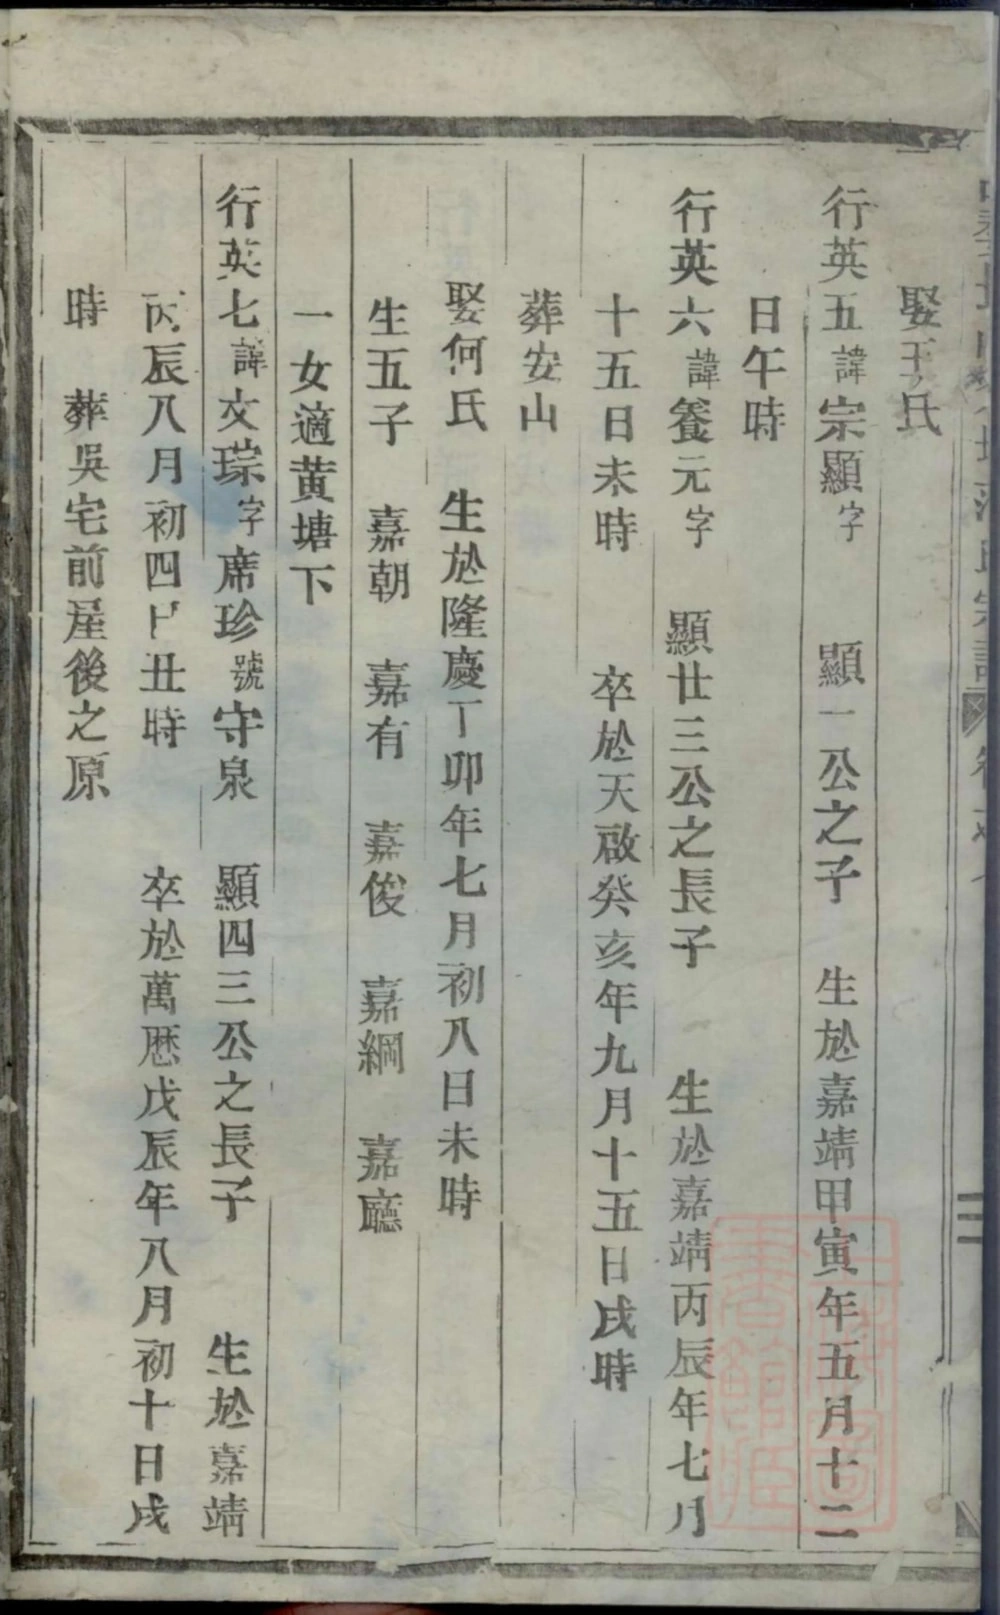 娶王氏
行英五諱宗顯字　顯一公之子　生於嘉靖甲寅年五月十二
日午時
行英六諱養元字　顯廿三公之長子　生於嘉靖丙辰年七月
十五日未時　卒於天啟癸亥年九月十五日戌時
葬安山
娶何氏　生於隆慶丁卯年七月初八日未時
生五子　嘉朝　嘉有　嘉俊　嘉綱　嘉廳
一女適黄塘下
行英七諱文琮字席珍號守泉　顯四三公之長子　生於嘉靖
丙辰八月初四日丑時　卒於萬厯戊辰年八月初十日戌
時　葬吳宅前屋後之原